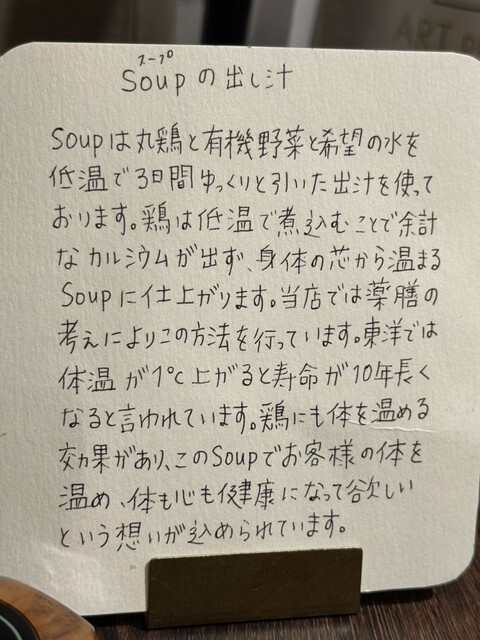 スープ
Soupの出し汁
Soupは丸鶏と有機野菜と希望の水を
低温で3日間ゆっくりと引いた出汁を使って
おります。鶏は低温で煮込むことで余計
なカルシウムが出ず、身体の芯から温まる
Soupに仕上がります。当店では薬膳の
考えによりこの方法を行っています。東洋では
体温が1℃上がると寿命が10年長く
なると言われています。鶏にも体を温める
効果があり、このSoupでお客様の体を
温め、体も心も健康になって欲しい
という想いが込められています。